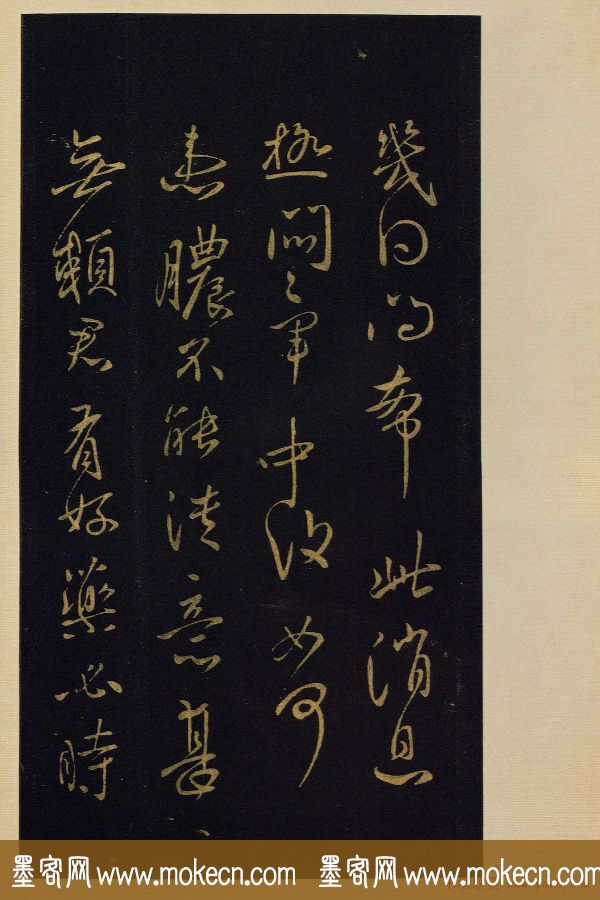 幾日此消息
極悶〻軍中復如何
患膿不能潰意甚〻
無賴君有好藥必時
墨客网 www.mokecn.com 墨客网 www.mokecn.com